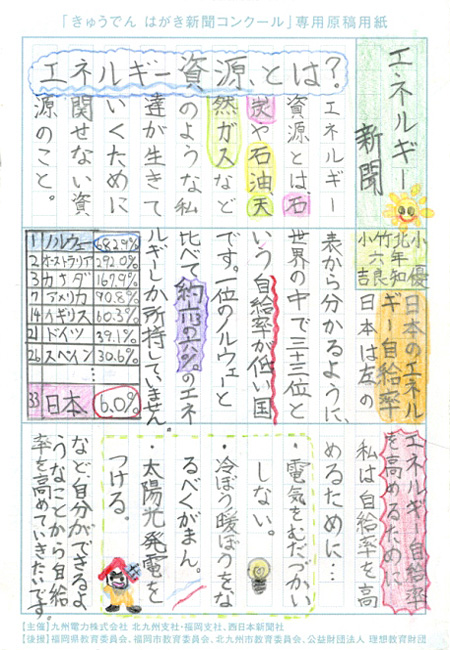 「きゅうでん はがき新聞コンクール」専用原稿用紙
エネルギー
新聞
エネルギー資源とは?
エネルギー
資源とは、石
炭や石油、天
然ガスなど
のような私
達が生きて
いくために
関せない資
源のこと。
小竹北小
六年
吉良知優
日本のエネル
ギー自給率
日本は左の
表から分かるように、
世界の中で三十三位と
いう自給率が低い国
です。一位のノルウェーと
比べて約 のエネ
ルギーしか所持していません。
1 ノルウェー 682.9%
2 オーストラリア 292.0%
3 カナダ 167.9%
7 アメリカ 90.8%
14 イギリス 60.3%
21 ドイツ 39.1%
26 スペイン 30.6%
33 日本 6.0%
エネルギー自給率
を高めるために
私は自給率を高
めるために…
・電気をむだづかい
しない。
・冷ぼう暖ぼうをな
るべくがまん。
・太陽光発電を
つける。
など、自分ができるよ
うなことから自給
率を高めていきたいです。
【主催】九州電力株式会社 北九州支社・福岡支社、西日本新聞社
【後援】福岡県教育委員会、福岡市教育委員会、北九州市教育委員会、公益財団法人 理想教育財団